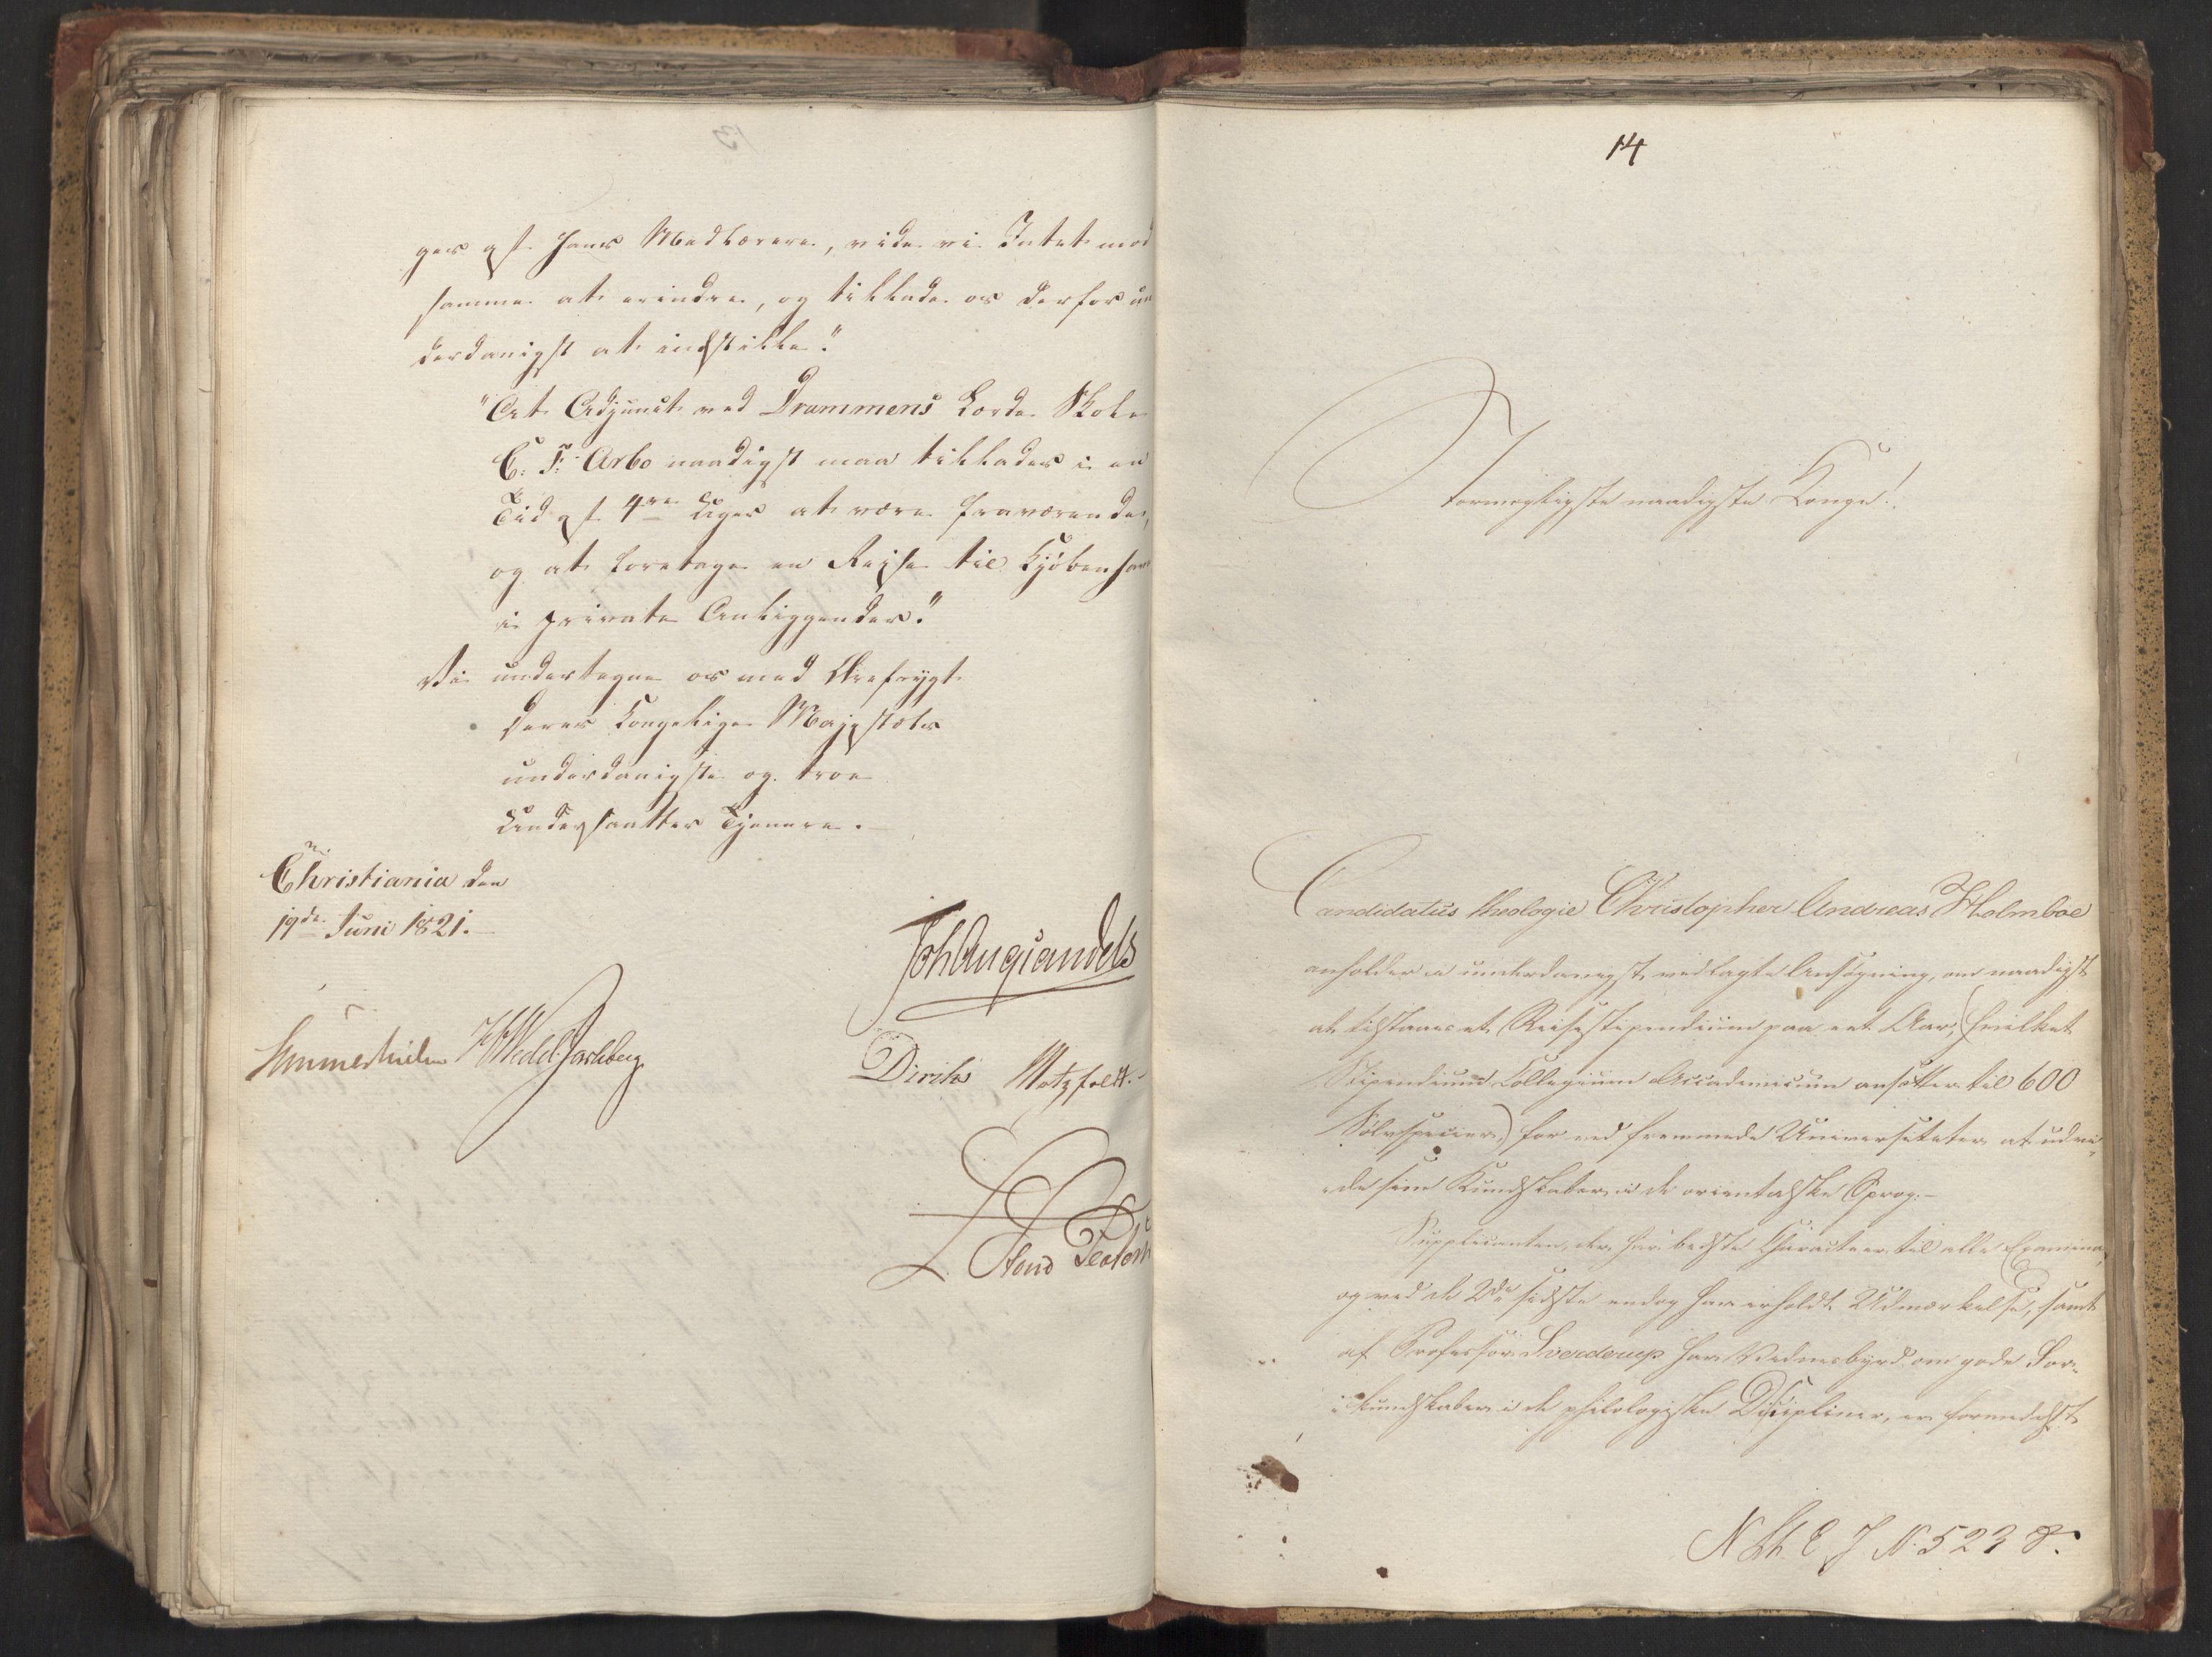 ger af hans Medlærere, vide vi Intet mod
samme at erindre, og tillade os derfor un
derdanigst at indstille:"
"At Adjunct ved Drammens Lærde Skole
C. F. Arbo naadigst maa tillades i en
Tid af 4re Uger at være fraværende,
og at foretage en Rejse til Kjöbenhavn
i private Anliggender."
Vi undertegne os med Ærefrygt
Deres Kongelige Majestæts
underdanigste og troe
Undersaatter Tjenere.
Christiania den
19de Juni 1821.
Joh Aug Sandels
Sommerhielm HWedel Jarlsberg
Diriks Motzfeldt
14
Stormægtigste naadigste Konge!
Candidatus theologie Christopher Andreas Holmboe
anholder i underdanigst vedlagte Ansögning, om naadigst
at tilstaaes et Reisestipendium paa eet Aar, (hvilket
Stipendium Collegium Accademicum ansætter til 600
Sölvspecier,) for ved fremmede Universiteter at udvi-
de sine Kundskaber i de orientalske Sprog.-
Supplicanten, der har bedste Characteer til alle Examina,
og ved de 2de sidste endog har erholdt Udmærkelse, samt
af Professor Sverdrup har Vidnesbyrd om gode For-
kundskaber i de philologiske Discipliner, er formedelst
N 523